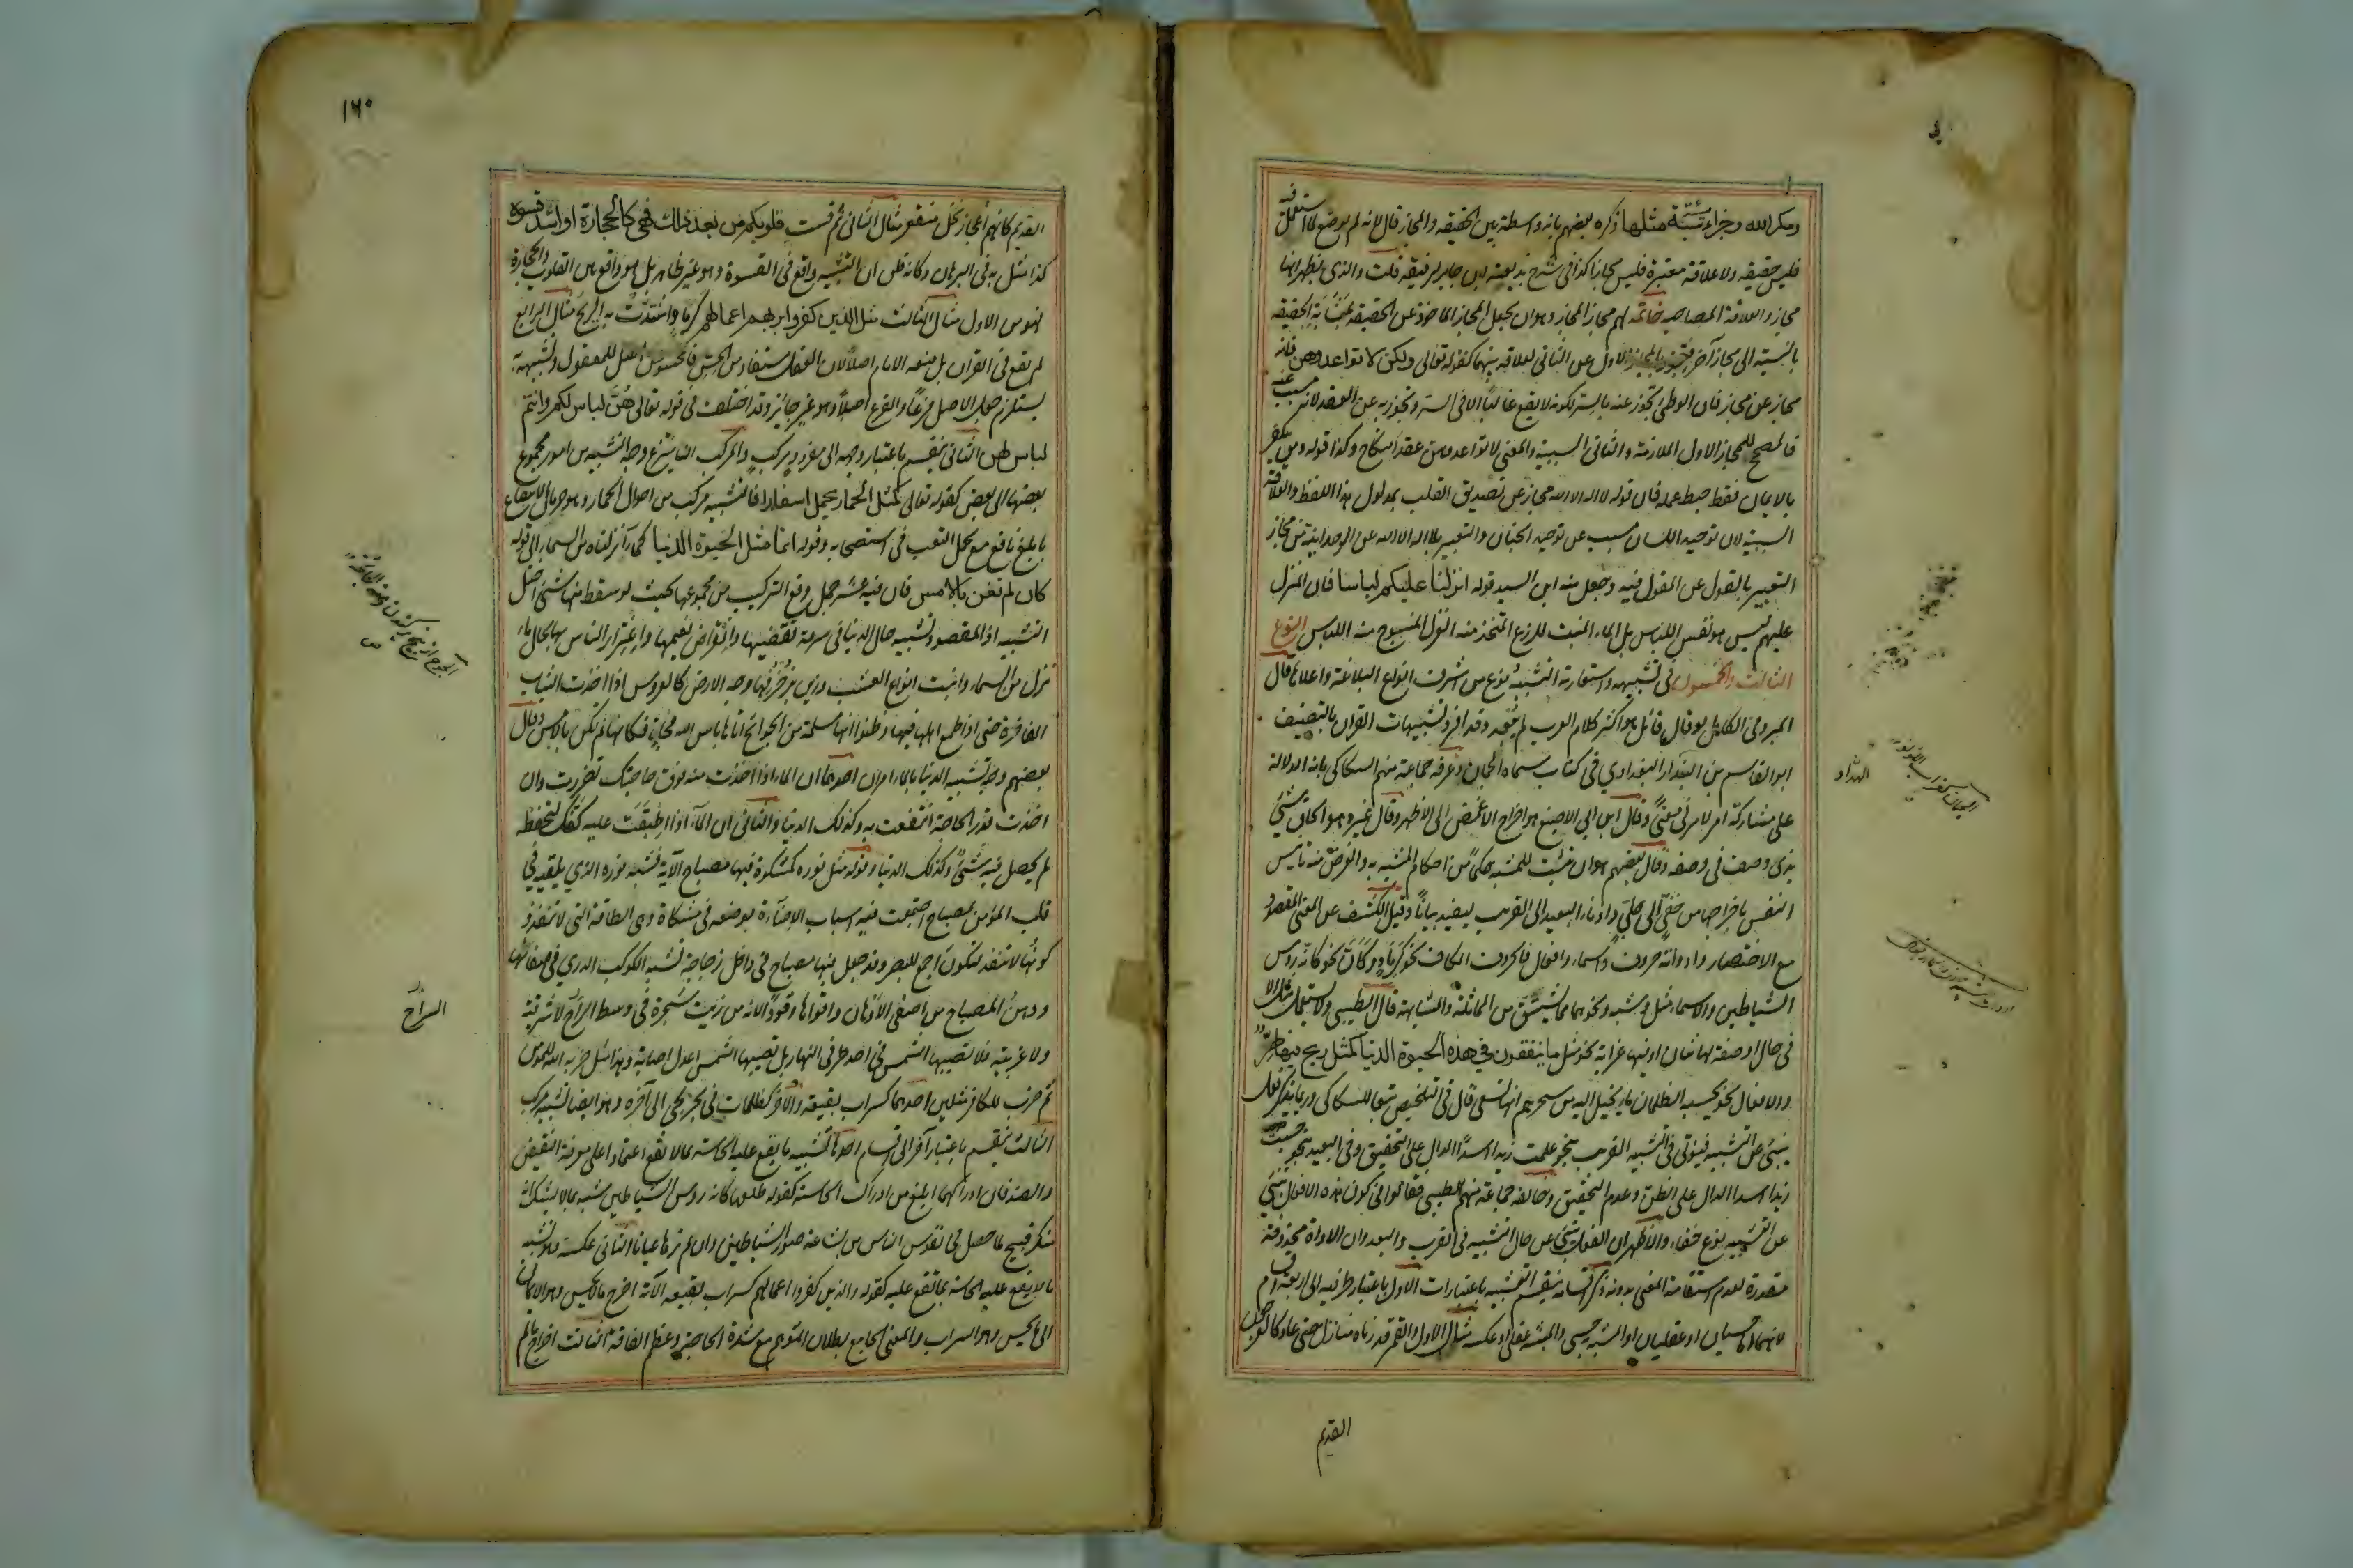 ومكر الله وجزاء سيئة سيئة مثلها ذكره بعضهم بانه واسطة بين الحقيقة والمجاز قال لانه لم يوضع لما استعمل فيه
فليس حقيقة ولا علاقة معتبرة فليس مجازا كذا في شرح بديعية ابن جابر لرفيقه قلت والذي يظهر انها
مجاز والعلاقة المصاحبة خاتمة لهم مجاز المجاز وهو ان يجعل المجاز الماخوذ عن الحقيقة بمثابة الحقيقة
بالنسبة الى مجاز آخر فيتجوز بالمجاز الاول عن الثاني لعلاقة بينهما كقوله تعالى ولكن لا تواعدوهن فانه
مجاز عن مجاز فان الوطئ تجوز عنه بالسر لكونه لا يقع غالبا الا في السر وتجوز به عن العقد لانه مسبب عنه
فالمصحح للمجاز الاول الملازمة والثاني السببية والمعنى لا تواعدوهن عقد النكاح وكذا قوله ومن يكفر
بالايمان فقط حبط عمله فان قوله لا اله الا الله مجاز عن تصديق القلب بمدلول هذا اللفظ والعلاقة
السببية لان توحيد اللسان مسبب عن توحيد الجنان والتعبير بلا اله الا الله عن الوحدانية من مجاز
التعبير بالقول عن المقول فيه وجعل منه ابن السيد قوله انزلنا عليكم لباسا فان المنزل
عليهم ليس هو نفس اللباس بل الماء المنبت للزرع المتخذ منه الغزل المنسوج منه اللباس النوع
الثالث والخمسون في تشبيهه واستعارته التشبيه نوع من اشرف انواع البلاغة واعلاها قال
المبرد في الكامل لو قال قائل هو اكثر كلام العرب لم يبعد وقد افرد تشبيهات القران بالتصنيف
ابو القاسم بن البندار البغدادي في كتاب سماه الجمان وعرفه جماعة منهم السكاكي بانه الدلالة
على مشاركة امر لامر في معنى وقال ابن ابي الاصبع هو اخراج الاغمض الى الاظهر وقال غيره هو الحاق شيئ
بذي وصف في وصفه وقال بعضهم هو ان تثبت للمشبه حكما من احكام المشبه به والغرض منه تانيس
النفس باخراجها من خفي الى جلي وادناء البعيد الى القريب ليفيد بيانا وقيل الكشف عن المعنى المقصود
مع الاختصار وادواته حروف واسماء وافعال فالحروف الكاف نحو كرماد وكان نحو كانه رؤس
الشياطين والاسماء مثل وشبه ونحوهما مما يشتق من المماثلة والمشابهة قال الطيبي ولا تستعمل مثل الا
في حال او صفة لها شان او فيها غرابة نحو مثل ما ينفقون في هذه الحيوة الدنيا كمثل ريح فيها صر
والافعال نحو يحسبه الظمان ماء يخيل اليه من سحرهم انها تسعى قال في التلخيص تبعا للسكاكي وربما يذكر فعل
ينبئ عن التشبيه فيؤتى في التشبيه القريب بنحو علمت زيدا اسدا الدال على التحقيق وفي البعيد بنحو حسبت
زيدا اسدا الدال على الظن وعدم التحقيق وخالفه جماعة منهم الطيبي فقالوا في كون هذه الافعال تنبئ
عن التشبيه نوع خفاء والاظهر ان الفعل ينبئ عن حال التشبيه في القرب والبعد وان الاداة محذوفة
مقدرة لعدم استقامة المعنى بدونه ذكر اقسامه ينقسم التشبيه باعتبارات الاول باعتبار طرفيه الى اربعة اقسام
لانهما اما حسيان او عقليان او المشبه به حسي والمشبه عقلي او عكسه مثال الاول والقمر قدرناه منازل حتى عاد كالعرجون
القديم
البداد
القديم كانهم اعجاز نخل منقعر مثال الثاني ثم قست قلوبكم من بعد ذلك فهي كالحجارة او اشد قسوة
كذا مثل به في البرهان وكانه ظن ان التشبيه واقع في القسوة وهو غير ظاهر بل هو واقع بين القلوب والحجارة
فهو من الاول مثال الثالث مثل الذين كفروا بربهم اعمالهم كرماد اشتدت به الريح مثال الرابع
لم يقع في القران بل منعه الامام اصلا لان العقل مستفاد من الحس فالمحسوس اصل للمعقول وتشبيهه به
يستلزم جعل الاصل فرعا والفرع اصلا وهو غير جائز وقد اختلف في قوله تعالى هن لباس لكم وانتم
لباس لهن الثاني ينقسم باعتبار وجهه الى مفرد ومركب والمركب ان ينتزع وجه الشبه من امور مجموع
بعضها الى بعض كقوله تعالى كمثل الحمار يحمل اسفارا فالتشبيه مركب من احوال الحمار وهو حرمان الانتفاع
بابلغ نافع مع تحمل التعب في استصحابه وقوله انما مثل الحيوة الدنيا كماء انزلناه من السماء الى قوله
كان لم تغن بالامس فان فيه عشر جمل وقع التركيب من مجموعها بحيث لو سقط منها شيئ اختل
التشبيه اذ المقصود تشبيه حال الدنيا في سرعة تقضيها وانقراض نعيمها واغترار الناس بها بحال ماء
نزل من السماء وانبت انواع العشب وزين بزخرفها وجه الارض كالعروس اذا اخذت الثياب
الفاخرة حتى اذا طمع اهلها فيها وظنوا انها مسلمة من الجوائح اتاها باس الله فجاة فكانها لم تكن بالامس وقال
بعضهم وجه تشبيه الدنيا بالماء امران احدهما ان الماء اذا اخذت منه فوق حاجتك تضررت وان
اخذت قدر الحاجة انتفعت به وكذلك الدنيا والثاني ان الماء اذا اطبقت عليه كفك لتحفظه
لم يحصل فيه شيئ وكذلك الدنيا وقوله مثل نوره كمشكوة فيها مصباح الآية فشبه نوره الذي يلقيه في
قلب المؤمن بمصباح اجتمعت فيه اسباب الاضاءة بوضعه في مشكاة وهي الطاقة التي لا تنفذ و
كونها لا تنفذ لتكون اجمع للبصر وقد جعل فيها مصباح في داخل زجاجة تشبه الكوكب الدري في صفائها
ودهن المصباح من اصفى الادهان واقواها وقودا لانه من زيت شجرة في وسط السراج لا شرقية
ولا غربية فلا تصيبها الشمس في احد طرفي النهار بل تصيبها الشمس اعدل اصابة وهذا مثل ضربه الله للمؤمن
ثم ضرب للكافر مثلين احدهما كسراب بقيعة والآخر كظلمات في بحر لجي الى آخره وهو ايضا تشبيه مركب
الثالث ينقسم باعتبار آخر الى اقسام احدها تشبيه ما يقع عليه الحاسة بما لا تقع اعتمادا على معرفة النقيض
والضد فان ادراكهما ابلغ من ادراك الحاسة كقوله طلعها كانه رؤس الشياطين شبه بما لا يشك انه
منكر قبيح لما حصل في نفوس الناس من بشاعة صور الشياطين وان لم ترها عيانا الثاني عكسه وهو تشبيه
ما لا يقع عليه الحاسة بما تقع عليه كقوله والذين كفروا اعمالهم كسراب بقيعة الآية اخرج ما لا يحس وهو الايمان
الى ما يحس وهو السراب والمعنى الجامع بطلان التوهم مع شدة الحاجة وعظم الفاقة الثالث اخراج ما لم
السراج
١٦٠